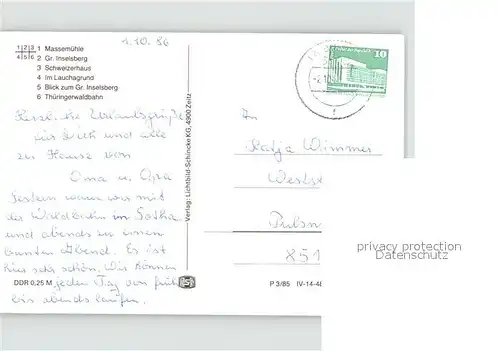 1.10.86
1|2|3
4|5|6
1 Massemühle
2 Gr. Inselsberg
3 Schweizerhaus
4 Im Lauchagrund
5 Blick zum Gr. Inselsberg
6 Thüringerwaldbahn
10
Herzliche Urlaubsgrüße
für Dich und alle
zu Hause von
Oma u. Opa
Gestern waren wir mit
der Waldbahn in Gotha
und abends zu einem
bunten Abend. Es ist
hier sehr schön. Wir können
jeden Tag von früh
bis abends laufen.
DDR 0,25 M
Verlag: Lichtbild-Schincke KG, 4900 Zeitz
An
Katja Wimmer
Pulsn
851
P 3/85 IV-14-48
privacy protection
Datenschutz